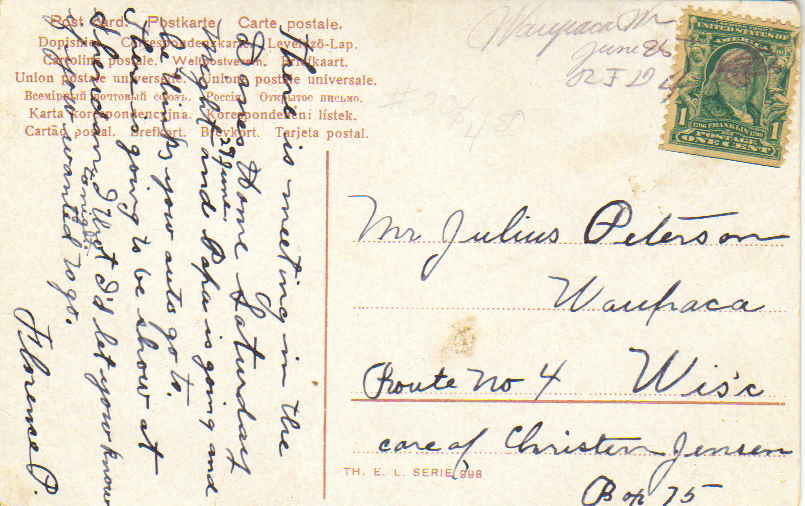 Post Card. Postkarte Carte postale.
Dopisnice Correspondenzkarte. Levelező-Lap.
Cartolina postale. Weltpostverein. Briefkaart.
Union postale universelle. Unione postale universale.
Всемірный почтовый союзъ. Россія. Открытое письмо.
Karta korespondencyjna. Korespondenční lístek.
Cartão postal. Brefkort. Brevkort. Tarjeta postal.
There is meeting in the
Danes Home Saturday
29 June.
Night and Papa is going and
he thinks you auto go to.
There is going to be show at
Sheridan
tonight
I'd let you know
if you wanted to go.
Florence P.
Waupaca
June 26
RFD 4
UNITED STATES OF
AMERICA
1 FRANKLIN 1
POSTAGE
ONE CENT
Mr Julius Peterson
Waupaca
Route No 4 Wis'c
care of Christen Jensen
Box 75
TH. E. L. SERIE 998